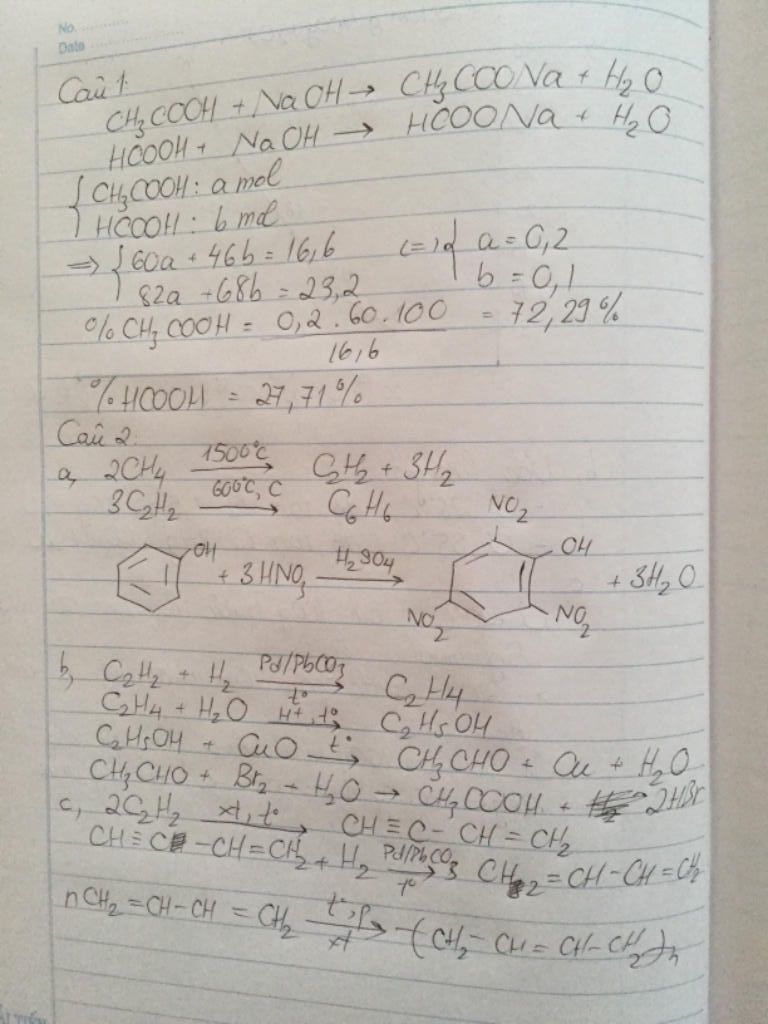 No.
Date
Câu 1:
CH₃COOH + NaOH → CH₃COONa + H₂O
HCOOH + NaOH → HCOONa + H₂O
{ CH₃COOH: a mol
HCOOH: b mol
⇒ { 60a + 46b = 16,6 (=) { a = 0,2
82a + 68b = 23,2 b = 0,1
% CH₃COOH = 0,2 . 60 . 100 = 72,29%
16,6
% HCOOH = 27,71%
Câu 2:
a, 2CH₄ →(1500°C) C₂H₂ + 3H₂
3C₂H₂ →(600°C, C) C₆H₆
NO₂
OH + 3HNO₃ →(H₂SO₄) OH + 3H₂O
NO₂ NO₂
b, C₂H₂ + H₂ →(Pd/PbCO₃, t°) C₂H₄
C₂H₄ + H₂O →(H⁺, t°) C₂H₅OH
C₂H₅OH + CuO →(t°) CH₃CHO + Cu + H₂O
CH₃CHO + Br₂ + H₂O → CH₃COOH + 2HBr
c, 2C₂H₂ →(xt, t°) CH ≡ C - CH = CH₂
CH ≡ C - CH = CH₂ + H₂ →(Pd/PbCO₃, t°) CH₂ = CH - CH = CH₂
nCH₂ = CH - CH = CH₂ →(t°, p, xt) -(CH₂ - CH = CH - CH₂)n